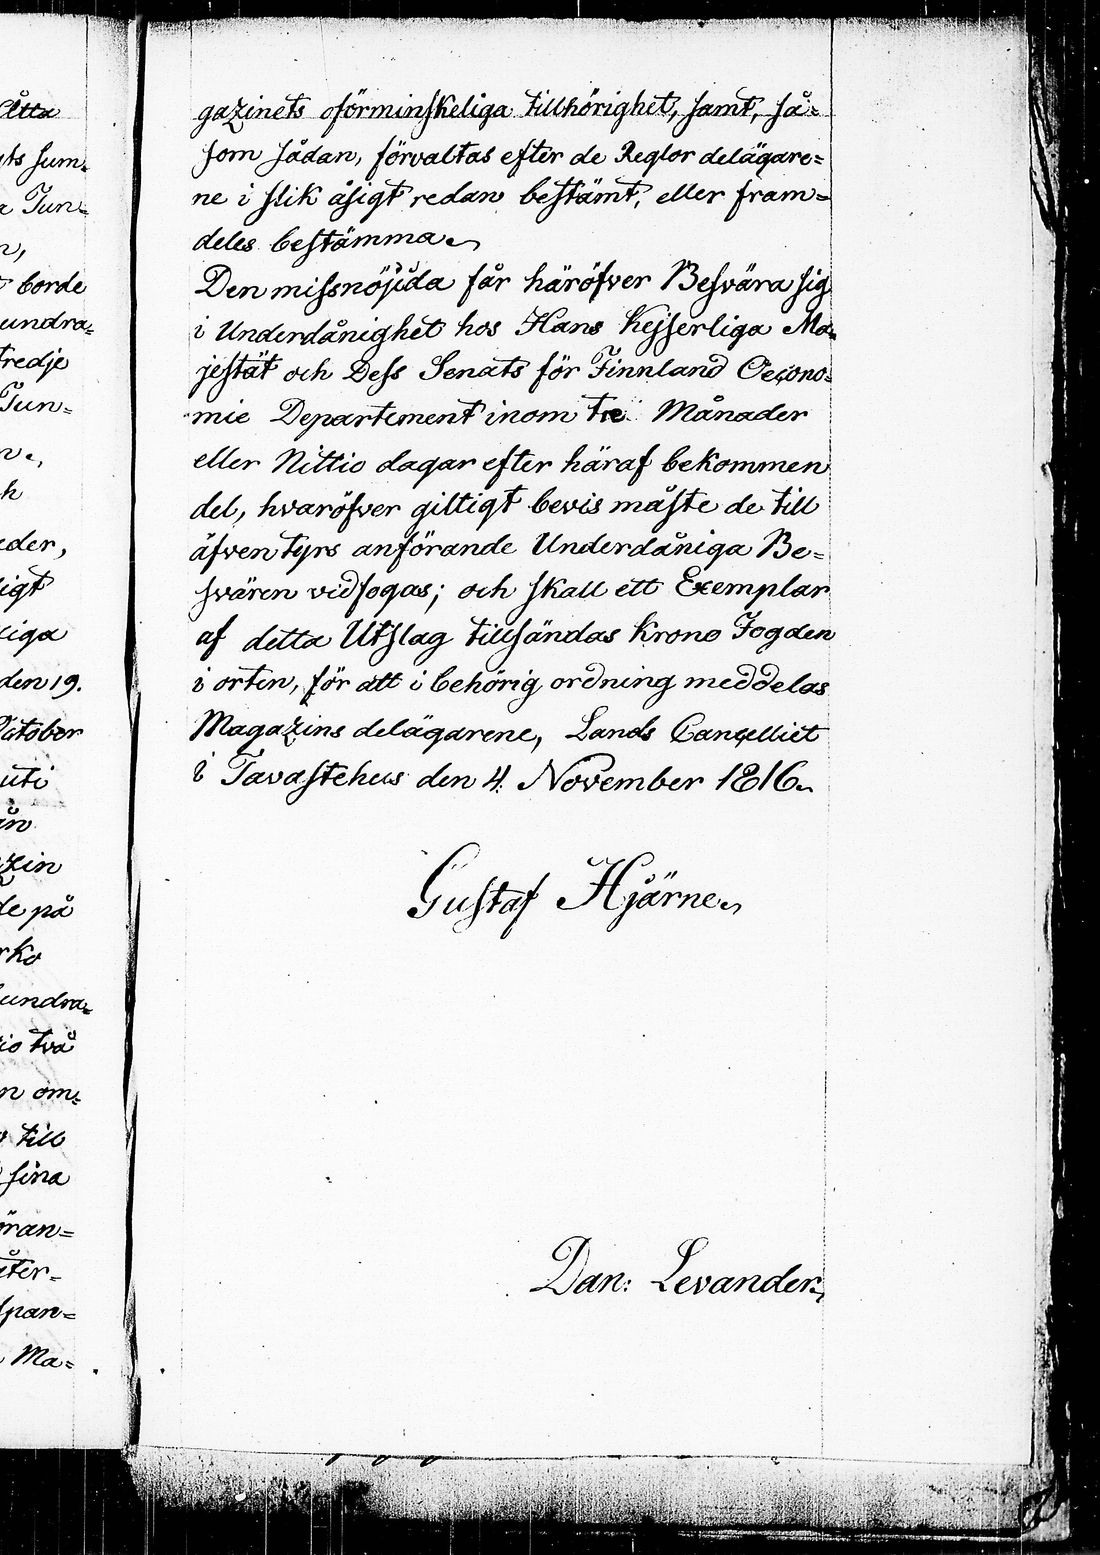 Åtta
ts sum-
Tun-
n,
borde
undra-
tredje
Tun-
n.,
h
eder,
ligt
liga
den 19.
October
uti
ån
zin
de på
rko
hundra-
io två
n om-
till
sina
öran-
åter-
span-
Ma-
gazinets oförminskeliga tillhörighet, samt, så-
som sådan, förvaltas efter de Reglor delägare-
ne i slik åsigt redan bestämt, eller fram-
deles bestämma.
Den missnöjda får häröfver Besvära sig
i Underdånighet hos Hans Kejserliga Ma-
jestät och Dess Senats för Finnland Oecono-
mie Departement inom tre Månader
eller Nittio dagar efter häraf bekommen
del, hvaröfver giltigt bevis måste de till
äfventyrs anförande Underdåniga Be-
svären vidfogas; och skall ett Exemplar
af detta Utslag tillsändas Krono Fogden
i orten, för att i behörig ordning meddelas
Magazins delägarene, Lands Cancelliet
i Tavastehus den 4. November 1816.
Gustaf Hjärne.
Dan: Levander.